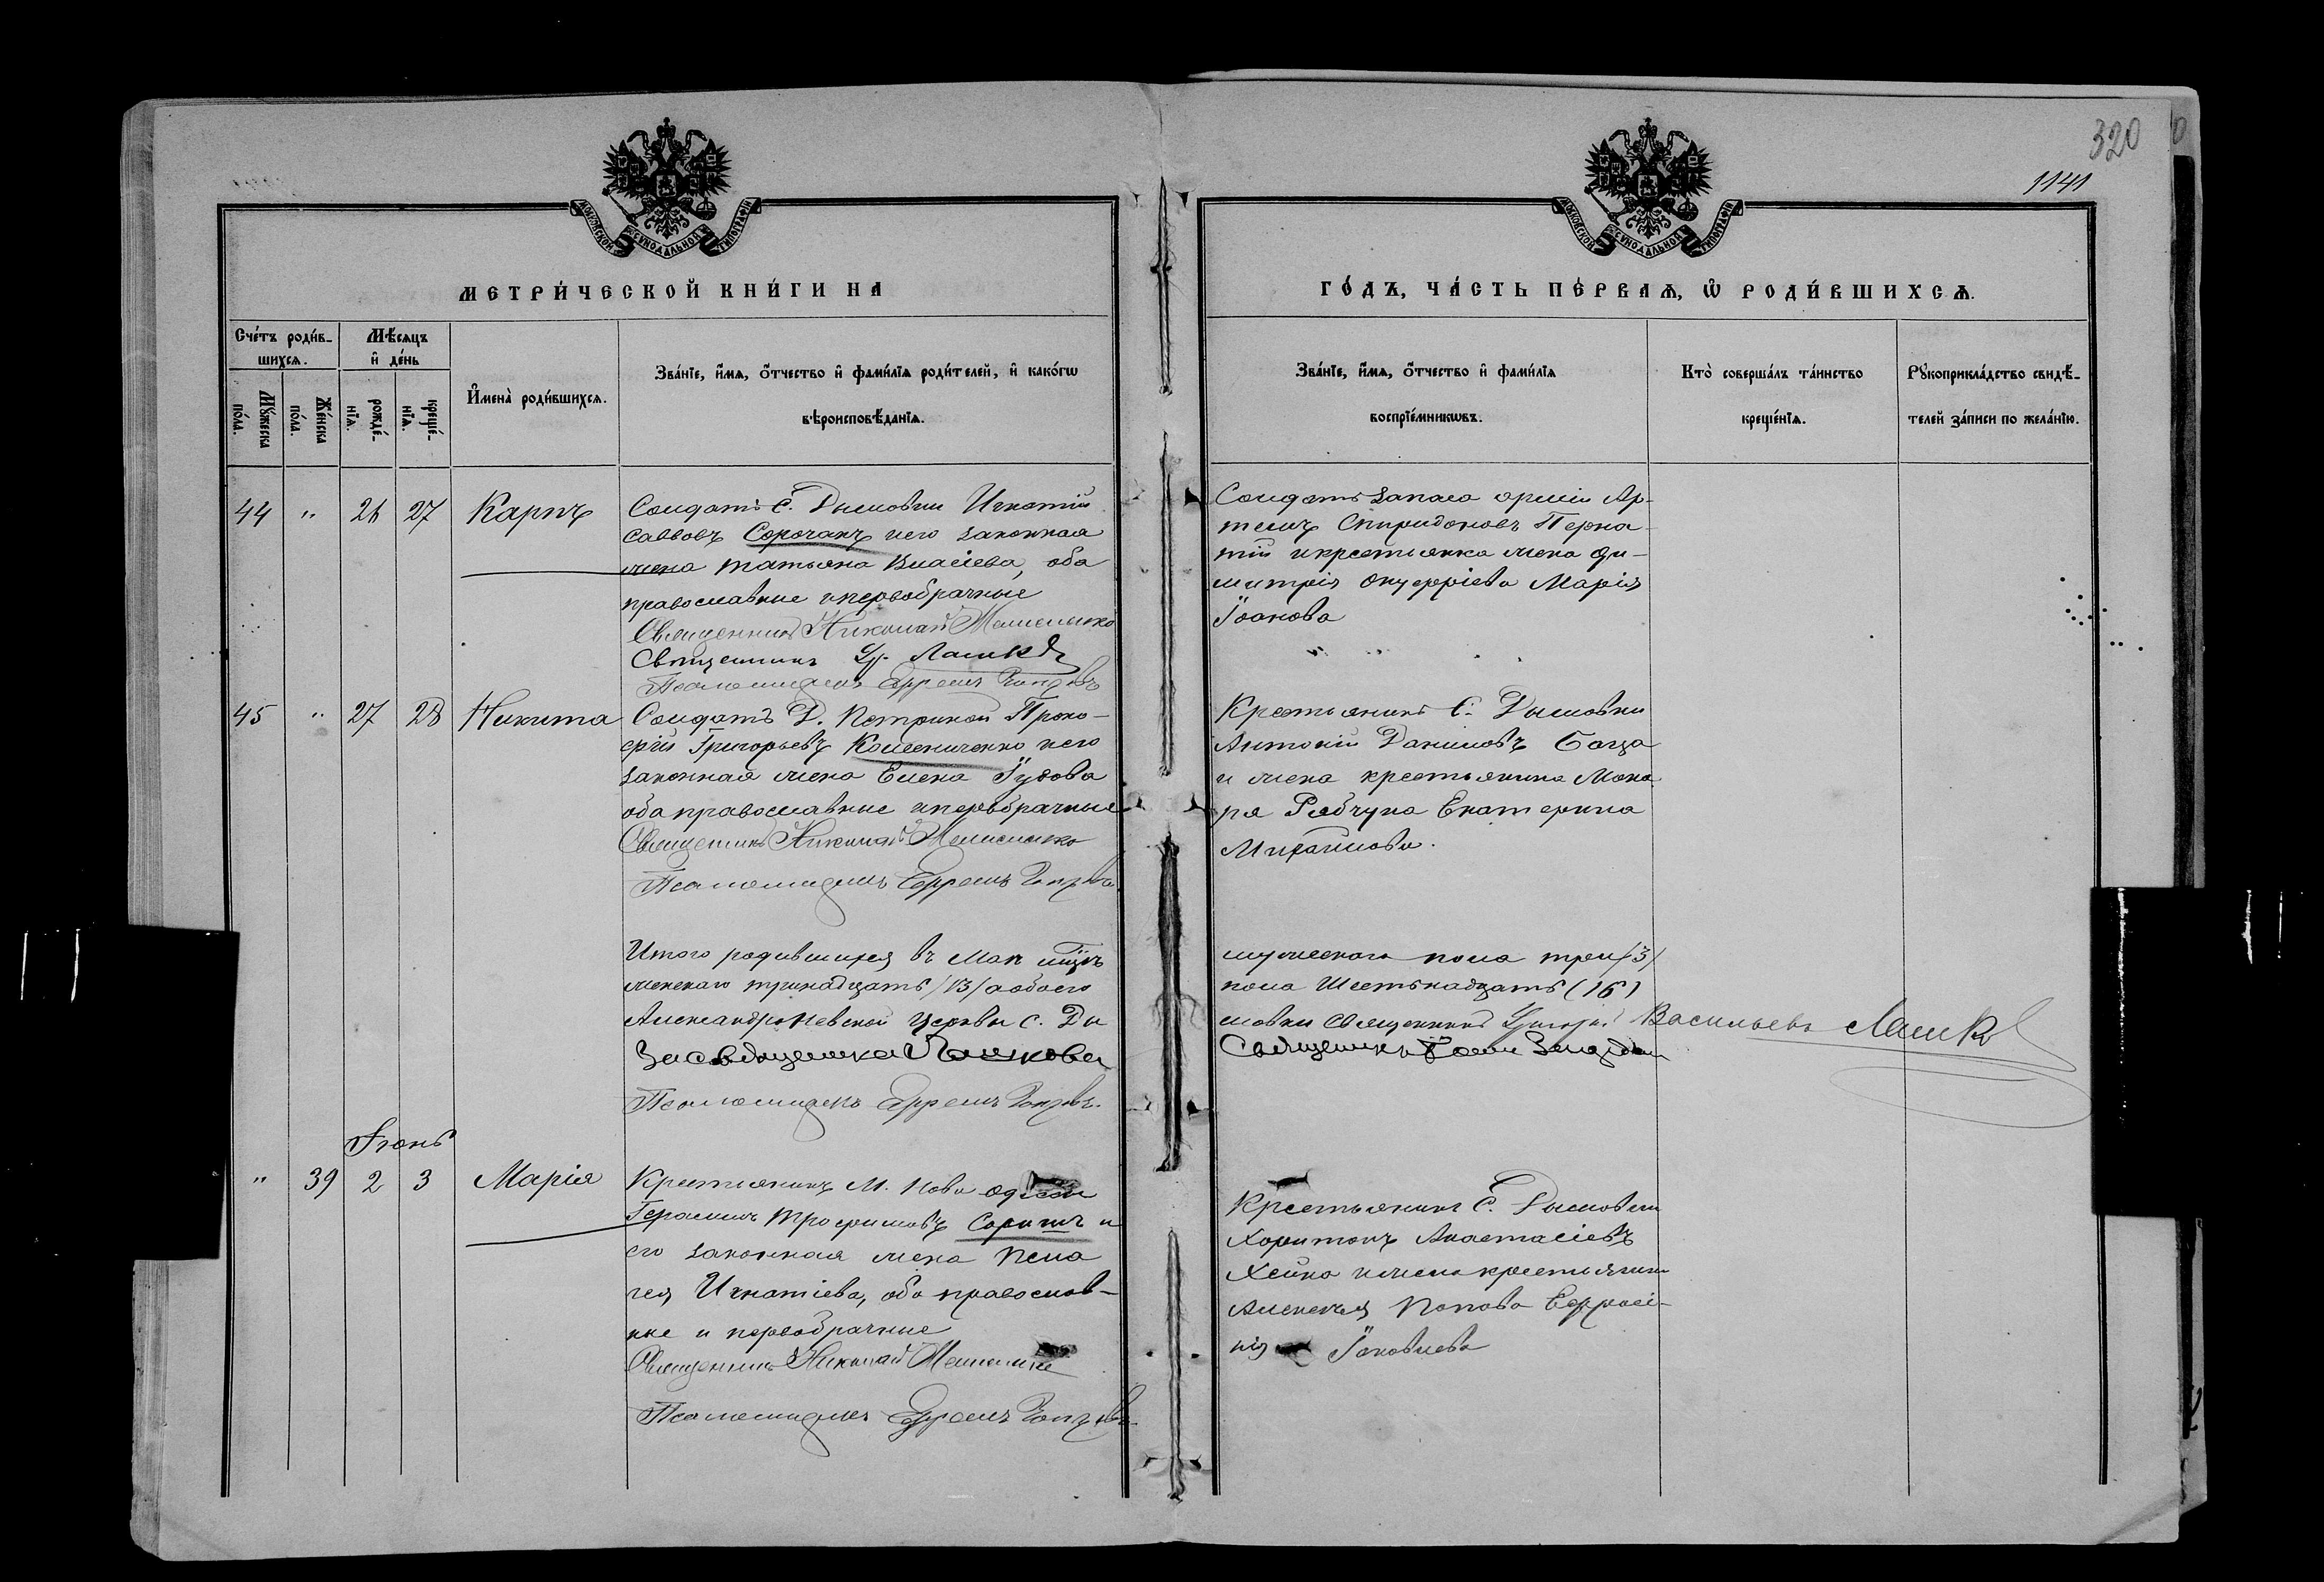 320
1141
МОСКОВСКОЙ СѴНОДАЛЬНОЙ ТИПОГРАФІИ
МОСКОВСКОЙ СѴНОДАЛЬНОЙ ТИПОГРАФІИ
МЕТРИ́ЧЕСКОЙ КНИ́ГИ НА
ГО́ДЪ, ЧА́СТЬ ПЕ́РВАѦ, Ѿ РОДИ́ВШИХСѦ.
Сче́тъ роди́в-
шихсѧ.
Мꙋ́жеска по́ла.
Же́нска по́ла.
Мѣ́сѧцъ
и҆ де́нь
рожде́-нїѧ.
креще́-нїѧ.
И҆мена̀ роди́вшихсѧ.
Зва́нїе, и҆́мѧ, ѻ҆́тчество и҆ фами́лїѧ роди́телей, и҆ како́гѡ
вѣроисповѣ́данїѧ.
Зва́нїе, и҆́мѧ, ѻ҆́тчество и҆ фами́лїѧ
воспрїе́мникѡвъ.
Кто̀ соверша́лъ та́инство
креще́нїѧ.
Рꙋкоприкла́дство свидѣ́-
телей за́писи по жела́нїю.
44 " 26 27 Карпъ
Солдатъ С. Дымовки Игнатій
Саввовъ Сорочанъ иего законная
жена Татьяна Власіева, оба
православные ипервобрачные
Священникъ Николай
Священникъ Гр. Лашко
Псаломщикъ Ефремъ
Солдатъ запаса арміи Ар-
темъ Спиридоновъ Перна
тій икрестьянка жена Ди-
митрія Онуфріева Марія
Іоанова
45 " 27 28 Никита
Солдатъ Д. Петриной Проко-
фій Григорьевъ Колесниченко иего
законная жена Елена Іудова
оба православные ипервобрачные
Священникъ Николай
Псаломщикъ Ефремъ
Крестьянинъ С. Дымовки
Антоній Даниловъ Богза
и жена крестьянина Мака
ря Рябчука Екатерина
Михаилова.
Итого родившихся въ Маѣ мцѣ
женскаго тринадцать /13/ аобоего
Александроневской церкви с. Ды
Псаломщикъ Ефремъ
мужескаго пола три /3/
пола Шестьнадцать (16)
мовки Священникъ Григорій Васильевъ Лашко
Священникъ
Іюнь
" 39 2 3 Марія
Крестьянинъ М. Ново Одессы
Герасимъ Трофимовъ Сорочанъ и
его законная жена Пела
гея Игнатіева, оба православ-
ные и первобрачные
Священникъ Николай
Псаломщикъ Ефремъ
Крестьянинъ С. Дымовки
Харитонъ Анастасіевъ
Хейко ижена крестьянина
Алексѣя Попова Евфросі-
нія Іаковлева